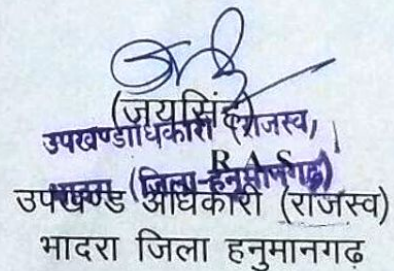 (जयसिंह)
उपखण्डाधिकारी (राजस्व)
R A S
भादरा (जिला-हनुमानगढ़)
उपखण्ड अधिकारी (राजस्व)
भादरा जिला हनुमानगढ़